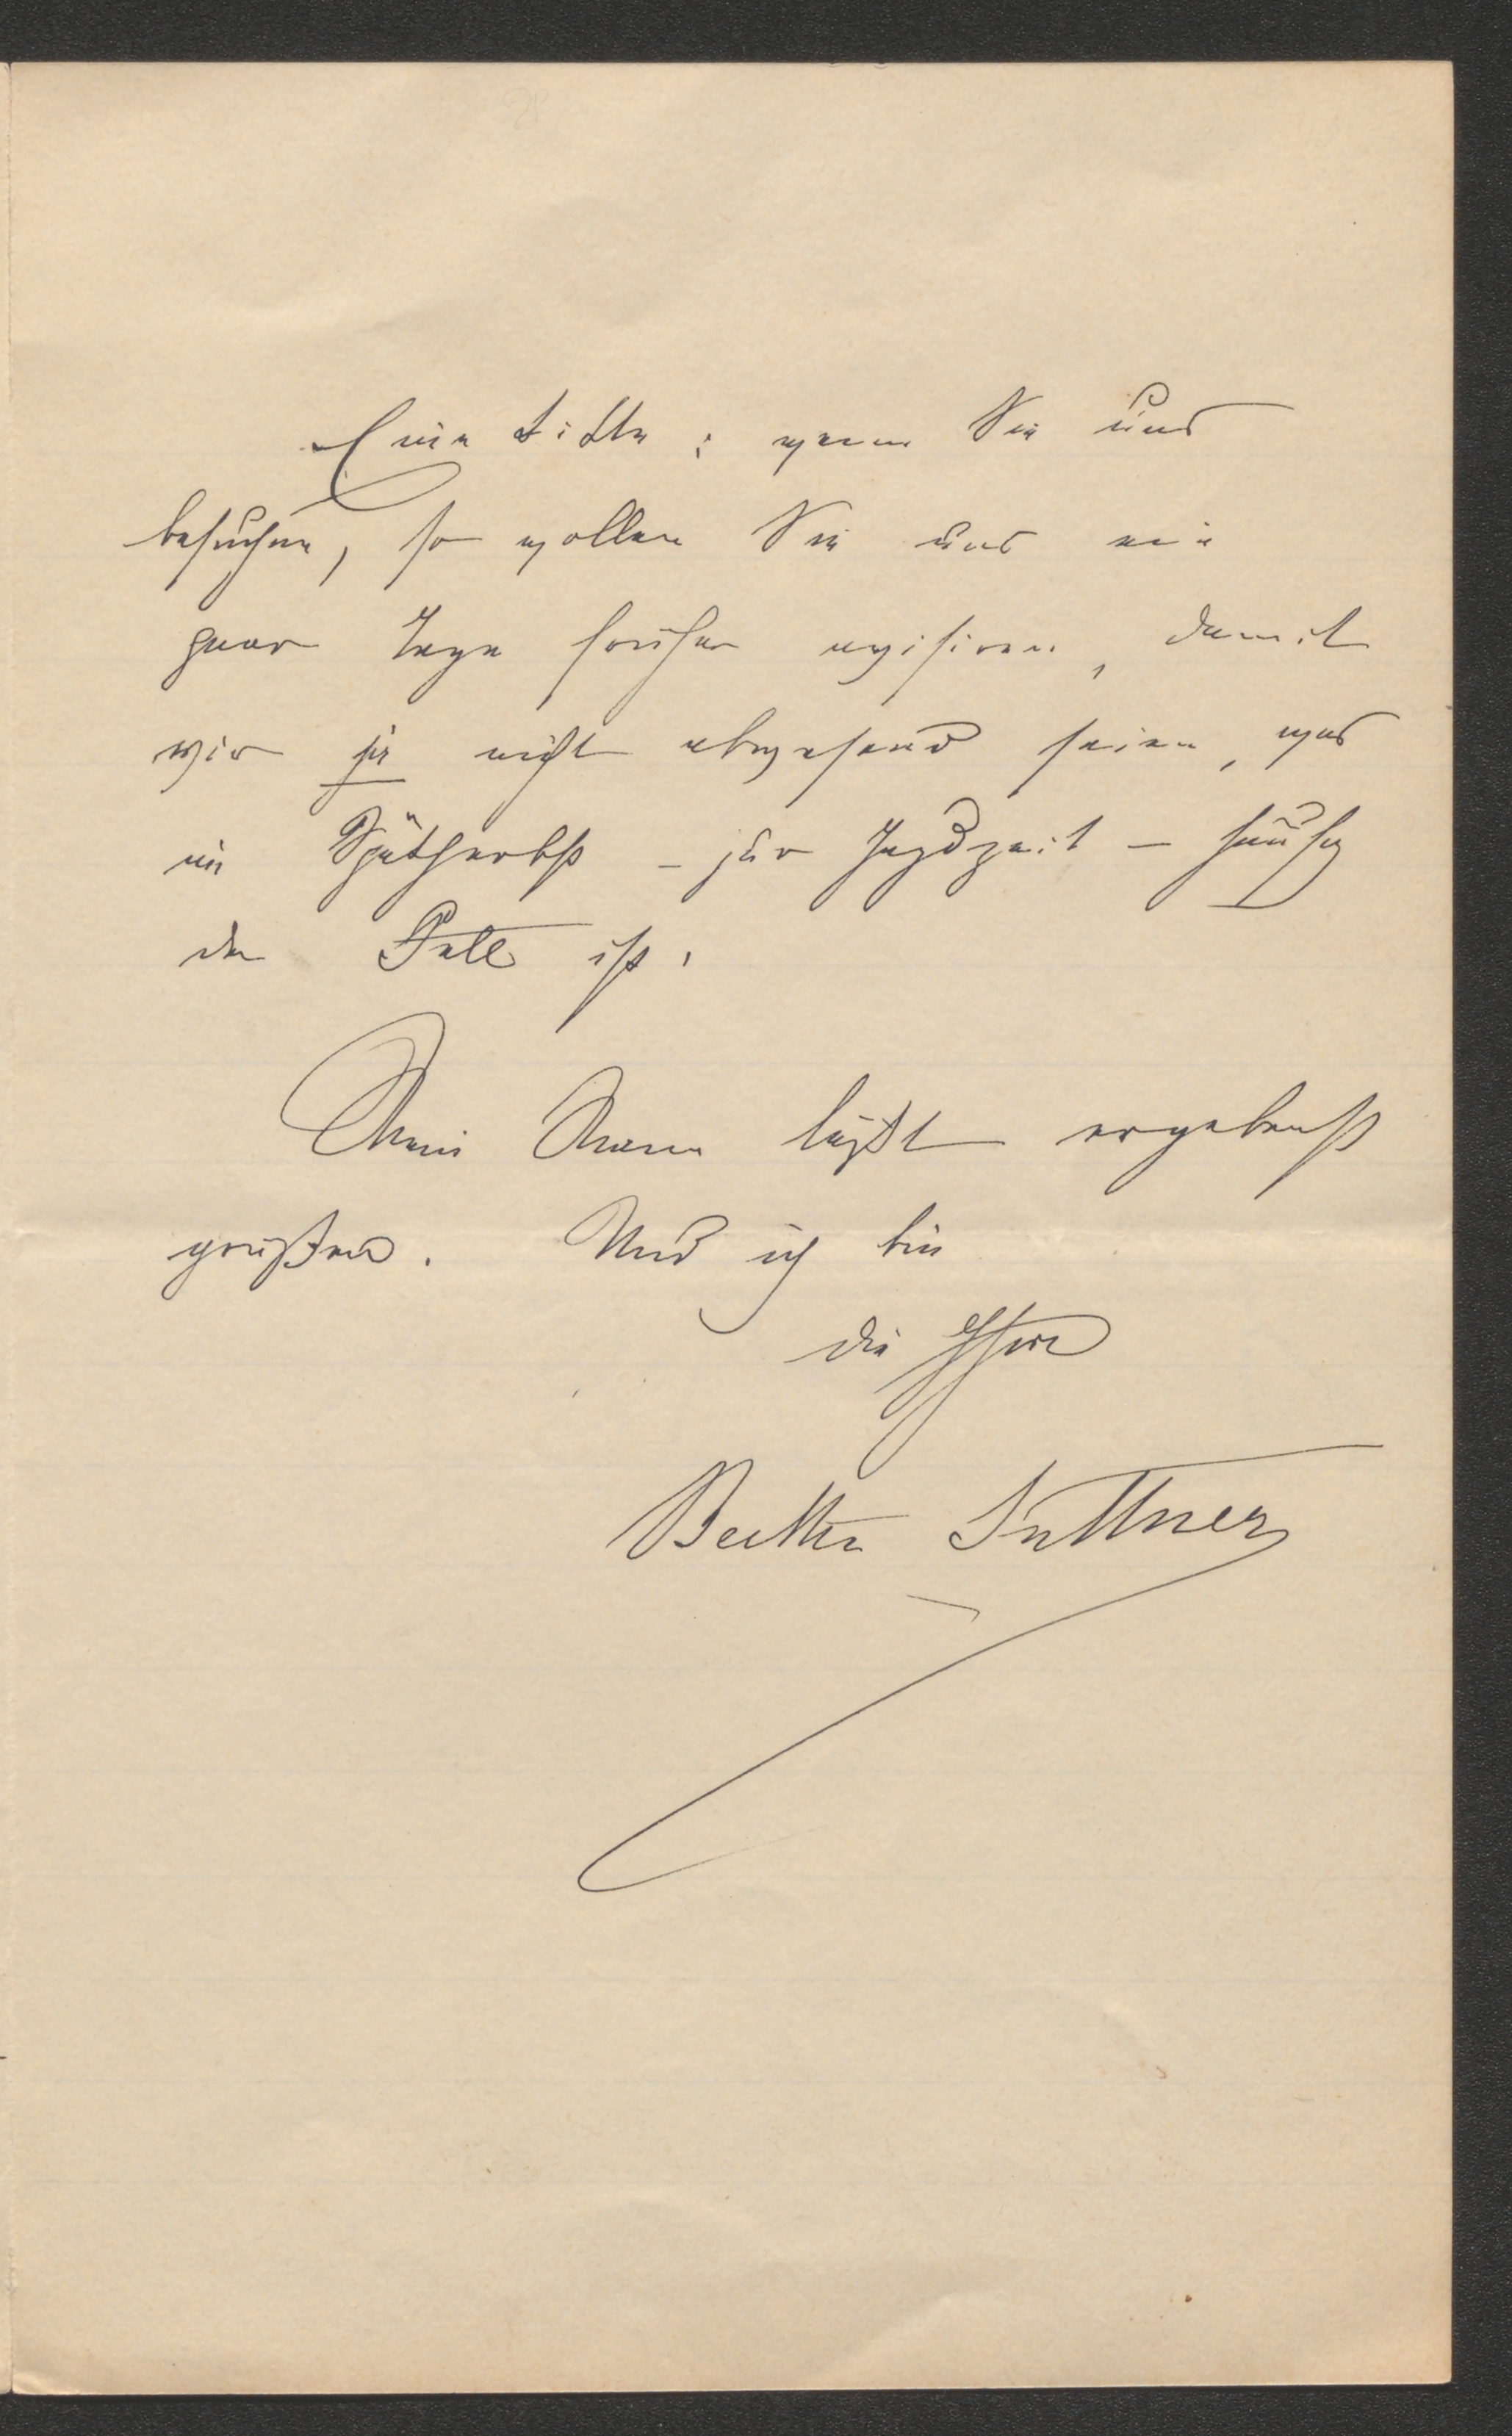 Eine Bitte: wenn Sie uns
besuchen, so wollen Sie uns ein
paar Tage früher avisiren, damit
wir ja nicht abwesend seien, was
im Spätherbst – zur Jagdzeit – häufig
der Fall ist.
Mein Mann läßt ergebenst
grüßen. Und ich bin
die Ihre
Bertha Suttner